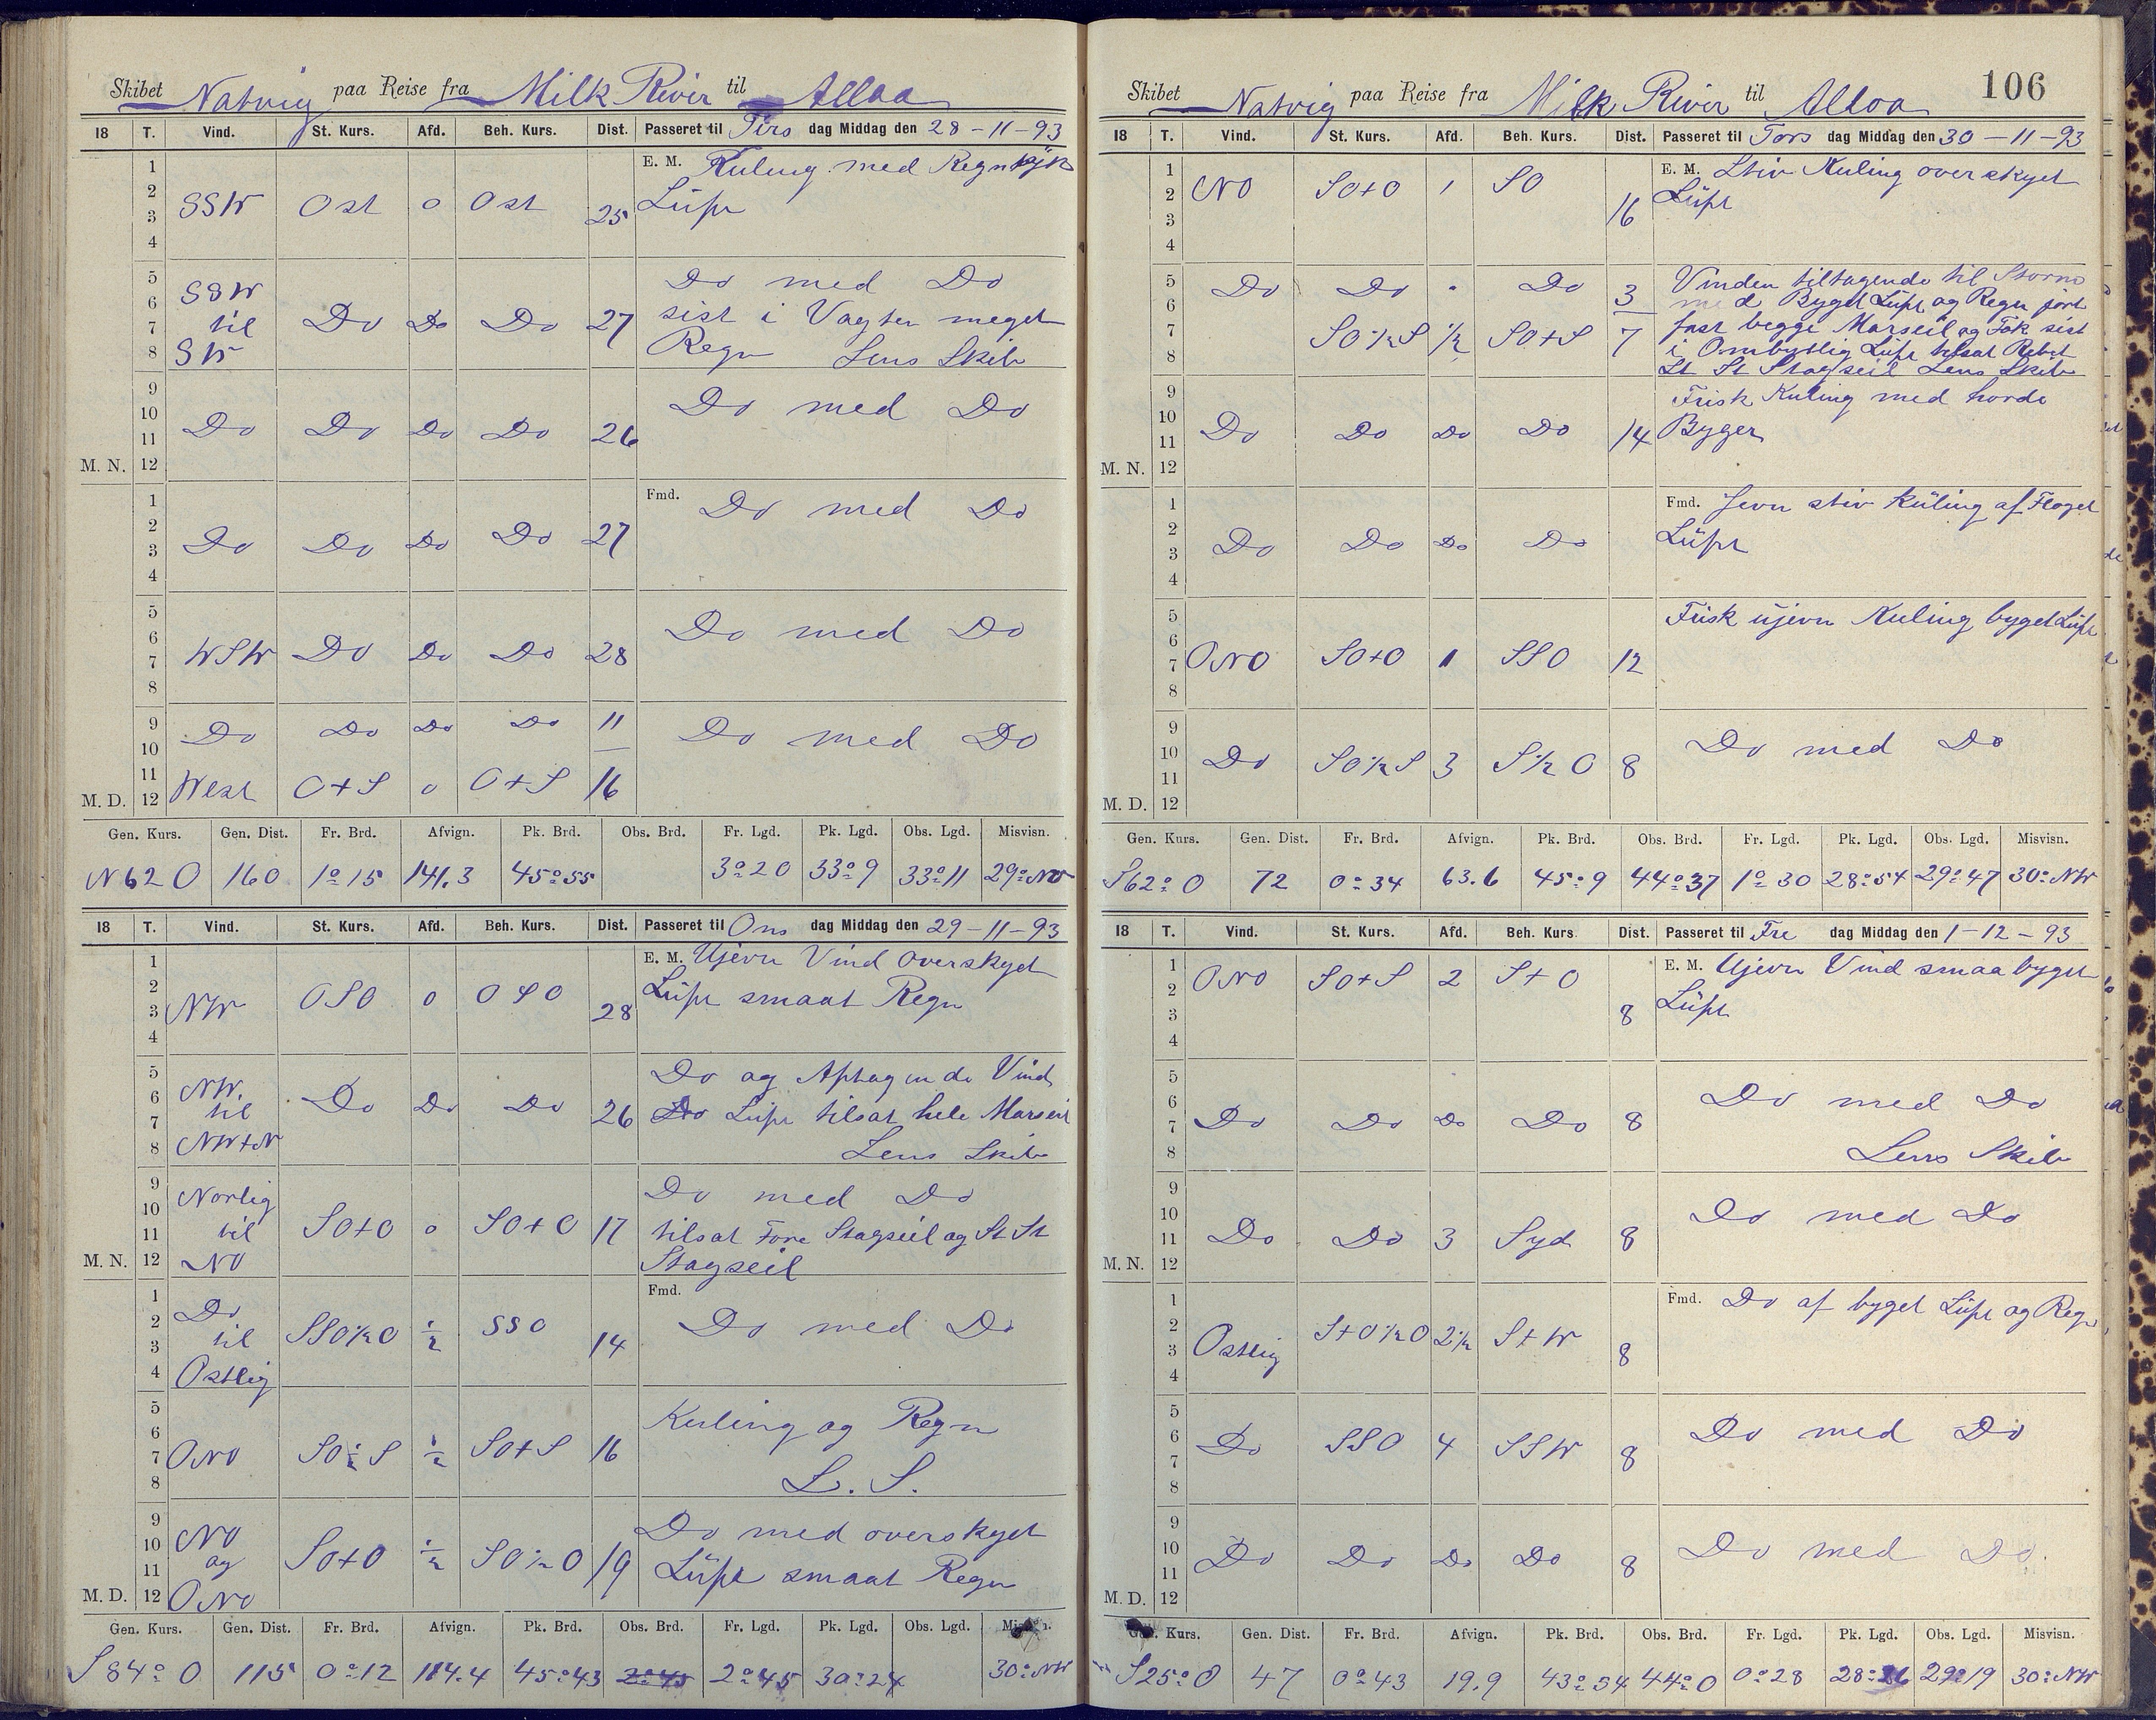 Skibet Natvig paa Reise fra Milk River til Alloa
18 T. Vind. St. Kurs. Afd. Beh. Kurs. Dist. Passeret til Tirs dag Middag den 28-11-93
1 E. M. Kuling med Regntjk
2 SSW Ost o Ost 25 Lüft
3
4
5 Do med Do
6 SSW til SW Do Do Do 27 sist i Vagten meget
7 Regn Lens Skib
8
9 Do med Do
10 Do Do Do Do 26
11
M. N. 12
1 Fmd. Do med Do
2
3 Do Do Do Do 27
4
5
6 Do med Do
7 WSW Do Do Do 28
8
9 Do Do Do Do 11
10 Do med Do
11
M. D. 12 West O+S o O+S 16
Gen. Kurs. Gen. Dist. Fr. Brd. Afvign. Pk. Brd. Obs. Brd. Fr. Lgd. Pk. Lgd. Obs. Lgd. Misvisn.
N 62 O 160 1º15 141.3 45º55 3º20 33º9 33º11 29º NW
18 T. Vind. St. Kurs. Afd. Beh. Kurs. Dist. Passeret til Ons dag Middag den 29-11-93
1 E. M. Ujevn Vind overskyet
2 Lüft smaat Regn
3 NW OSO o OSO 28
4
5 Do og Aftagende Vind
6 NW. til NW+N Do Do Do 26 Do Lüft tilsat hele Marseil
7 Lens Skib
8
9 Do med Do
10 Norlig til NO SO+O o SO+O 17
11 tilsat Fore Stagseil og St St
M. N. 12 Stagseil
1 Fmd.
2 Do til Ostlig SSO½O ½ SSO 14 Do med Do
3
4
5
6 Kuling og Regn
7 ONO SO½S ½ SO+S 16
8 L. S.
9 Do med overskyet
10 NO og ONO SO+O ½ SO½O 19
11 Lüft smaat Regn
M. D. 12
Gen. Kurs. Gen. Dist. Fr. Brd. Afvign. Pk. Brd. Obs. Brd. Fr. Lgd. Pk. Lgd. Obs. Lgd. Misvisn.
S 84º O 115 0º12 114.4 45º43 2º45 2º45 30º24 30º NW
106
Skibet Natvig paa Reise fra Milk River til Alloa
18 T. Vind. St. Kurs. Afd. Beh. Kurs. Dist. Passeret til Tors dag Middag den 30-11-93
1 E. M. Stiv Kuling overskyet
2 NO SO+O 1 SO 16 Lüft
3
4
5 Do Do " Do 3 Vinden tiltagende til Storm
6 med Byget Lüft og Regn gort
7 SO½S ½ SO+S 7 fast begge Marseil og Fok sist
8 i Ombytlig Lüft tilsat Rebet
St St Stagseil Lens Skib
9 Frisk Kuling med harde
10 Byger
11 Do Do Do Do 14
M. N. 12
1 Fmd. Jevn stiv Küling af Floget
2 Lüft
3 Do Do Do Do
4
5 Frisk ujevn Kuling byget Lüft
6
7 ONO SO+O 1 SSO 12
8
9 Do med Do
10 Do SO½S 3 S½O 8
11
M. D. 12
Gen. Kurs. Gen. Dist. Fr. Brd. Afvign. Pk. Brd. Obs. Brd. Fr. Lgd. Pk. Lgd. Obs. Lgd. Misvisn.
S 62º O 72 0º34 63.6 45º9 44º37 1º30 28º54 29º47 30º NW
18 T. Vind. St. Kurs. Afd. Beh. Kurs. Dist. Passeret til Fre dag Middag den 1-12-93
1 E. M. Ujevn Vind smaa byget
2 ONO SO+S 2 S+O 8 Lüft
3
4
5
6 Do med Do
7 Do Do Do Do 8
8 Lens Skib
9
10 Do med Do
11 Do Do 3 Syd 8
M. N. 12
1 Fmd. Do af byget Lüft og Regn
2
3 Ostlig S+O½O 2½ S+W 8
4
5
6 Do med Do
7 Do SSO 4 SSW 8
8
9
10 Do med Do.
11 Do Do Do Do 8
M. D. 12
Gen. Kurs. Gen. Dist. Fr. Brd. Afvign. Pk. Brd. Obs. Brd. Fr. Lgd. Pk. Lgd. Obs. Lgd. Misvisn.
S 25º O 47 0º43 19.9 43º54 44º0 0º28 28º26 29º19 30º NW